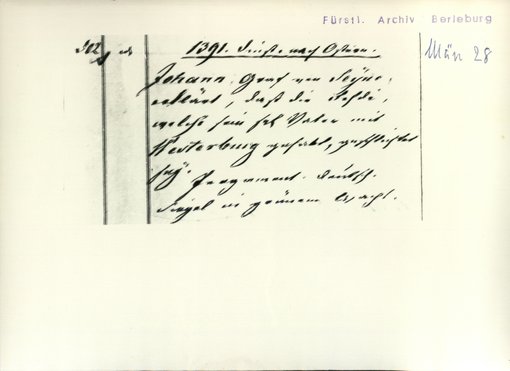 Fürstl. Archiv Berleburg
Män 28
1391. Dienst. nach Ostern.
Johann, Graf von Seyne,
erklärt, daß die Fehde,
welche sein sel. Vater mit
Westerburg gehabt, geschlichtet
sey.
Pergament. Deutsch.
Siegel in grünem Wachs.